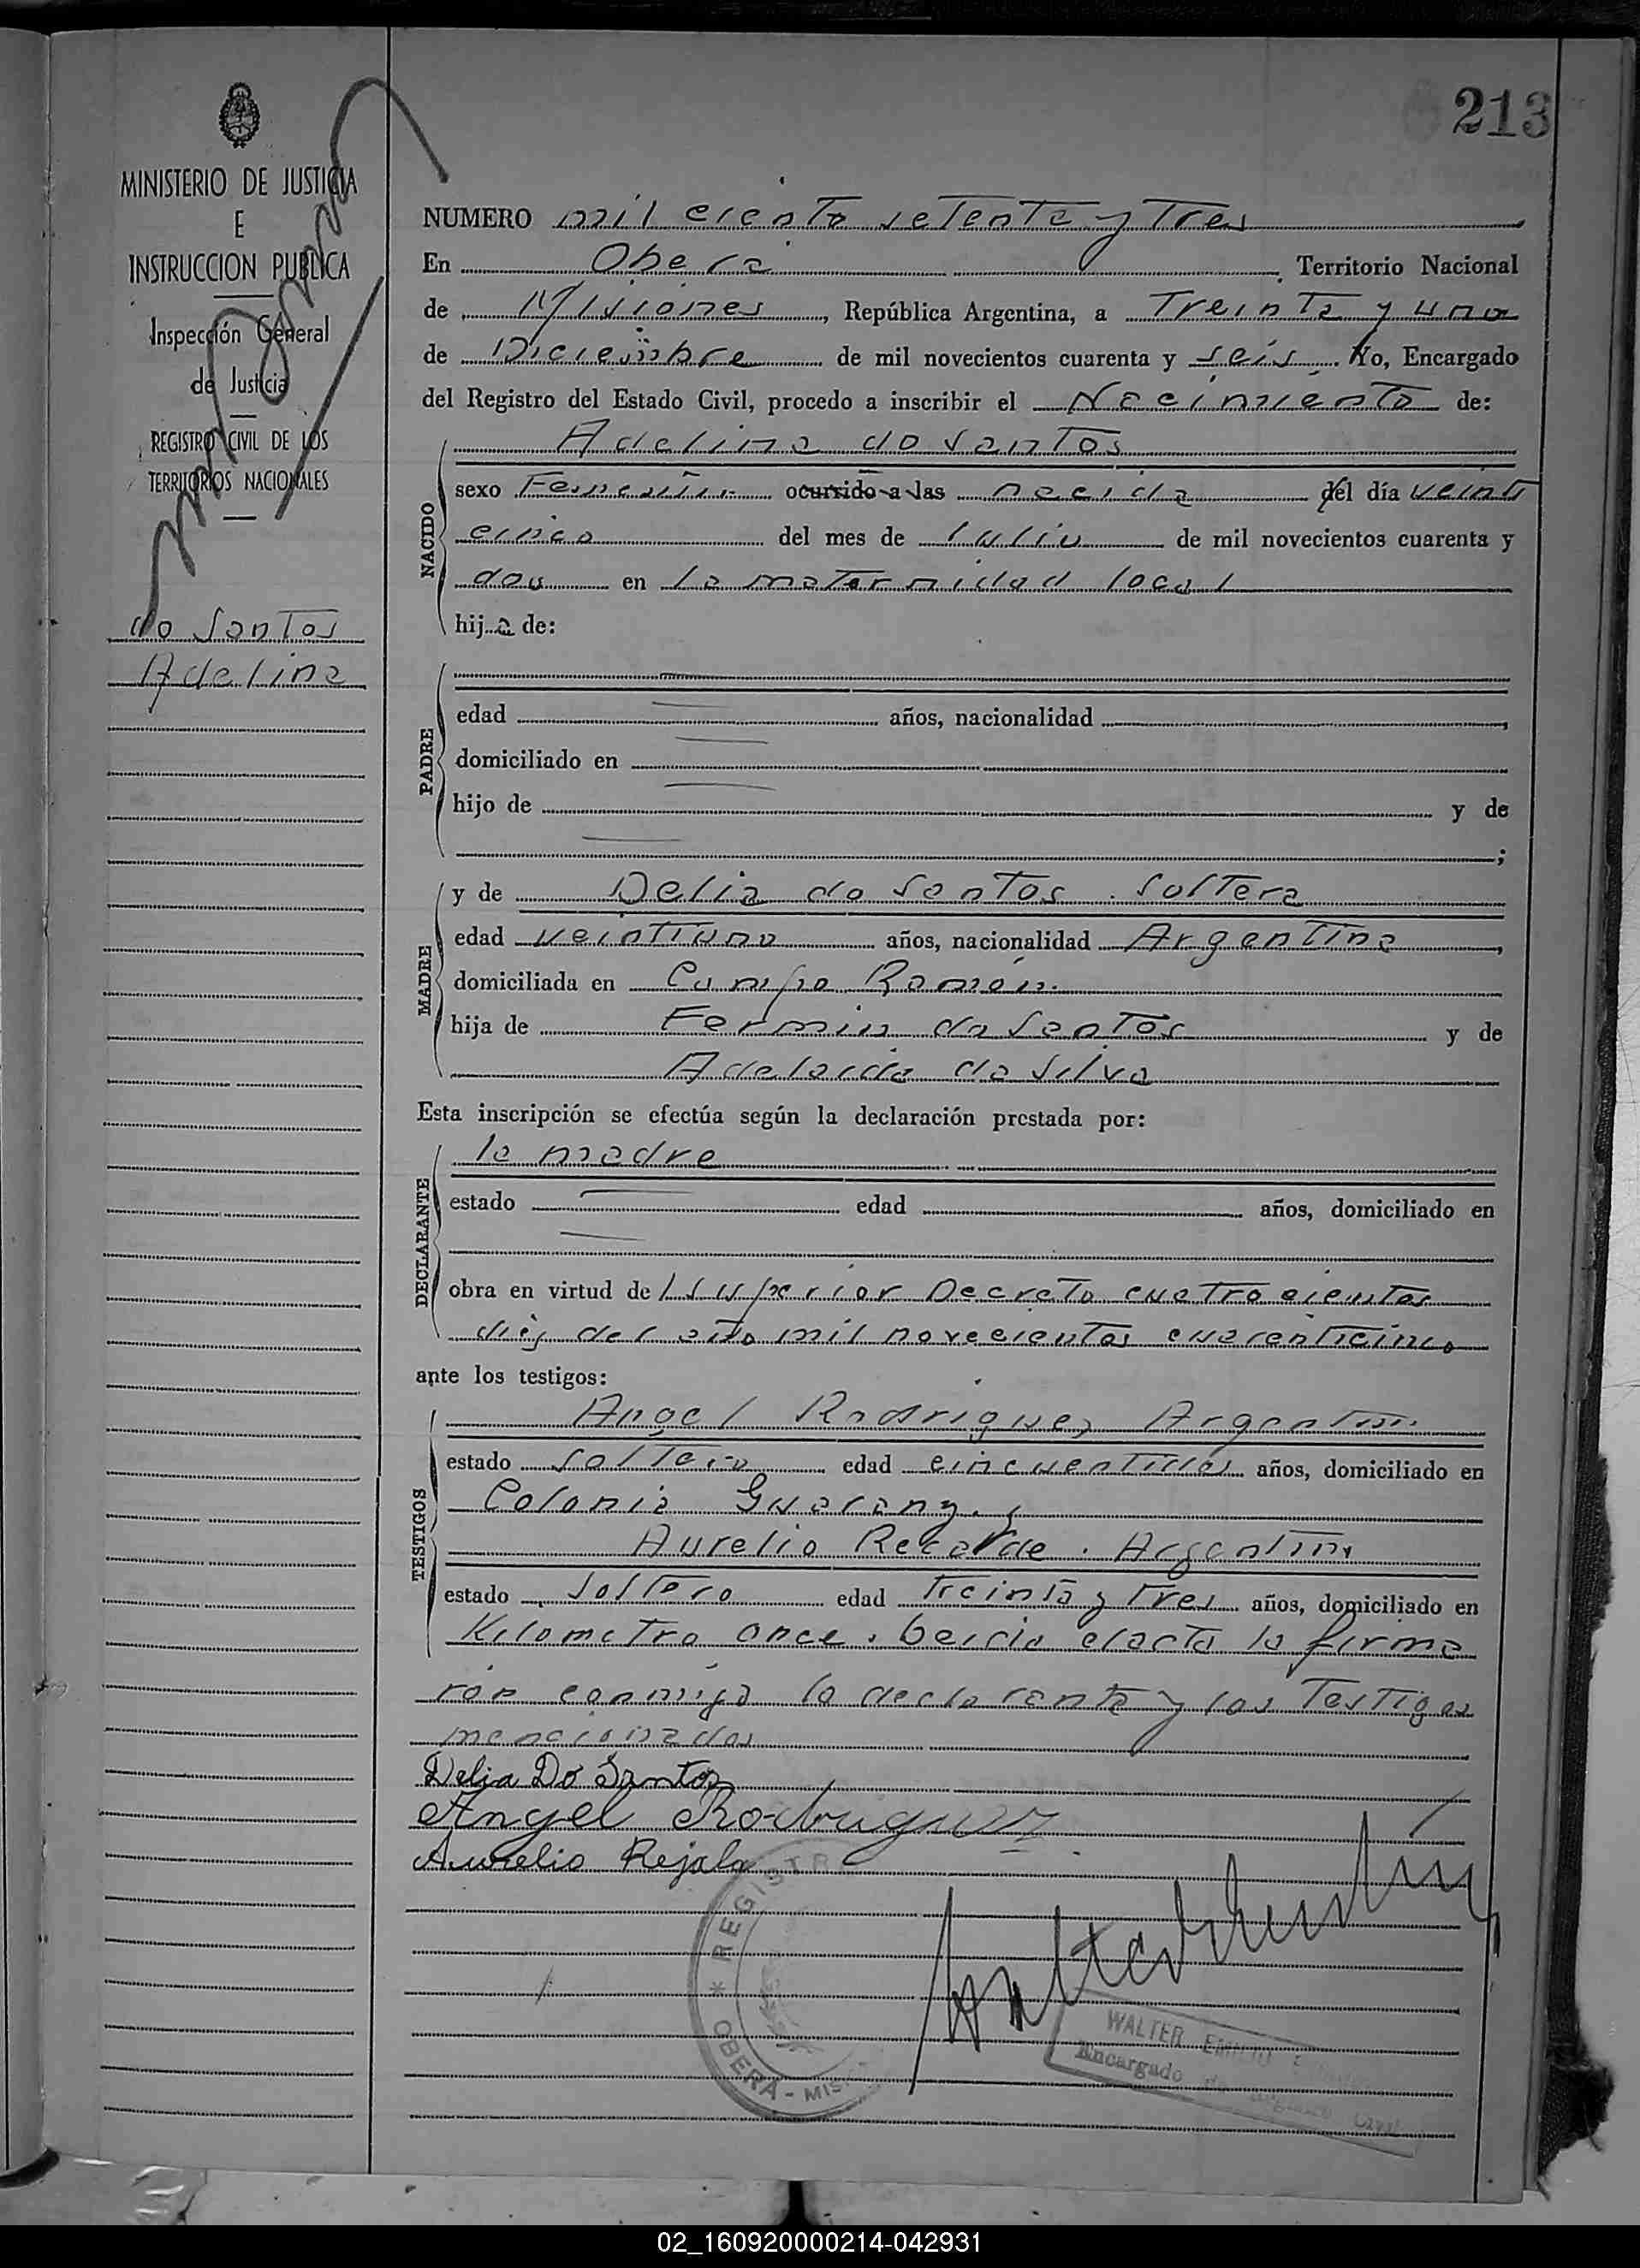 213
MINISTERIO DE JUSTICIA
E
INSTRUCCION PUBLICA
Inspección General
de Justicia
REGISTRO CIVIL DE LOS
TERRITORIOS NACIONALES
do Santos
Adelina
NUMERO mil ciento setenta y Tres
En Oberá Territorio Nacional
de Misiones, República Argentina, a Treinta y uno
de Diciembre de mil novecientos cuarenta y seis. Yo, Encargado
del Registro del Estado Civil, procedo a inscribir el Nacimiento de:
NACIDO
Adelina do Santos
sexo Femenino ocurrido a las nacida del día veinti
cinco del mes de Julio de mil novecientos cuarenta y
dos en la maternidad local
hija de:
PADRE
edad años, nacionalidad
domiciliado en
hijo de y de
;
MADRE
y de Delia do Santos. Soltera
edad veintiuno años, nacionalidad Argentina,
domiciliada en Campo Ramón.
hija de Fermin do Santos y de
Adelaida da Silva
Esta inscripción se efectúa según la declaración prestada por:
DECLARANTE
la madre
estado edad años, domiciliado en
obra en virtud del superior Decreto cuatrocientos
diez del año mil novecientos cuarenticinco
ante los testigos:
TESTIGOS
Angel Rodriguez Argentino
estado Soltero edad años, domiciliado en
Colonia Guarany. y
Aurelio Recalde. Argentino
estado Soltero edad Treinta y Tres años, domiciliado en
Kilometro once. leida el acta la firma
ron conmigo la declarante y los Testigos
mencionados
Delia Do Santos
Angel Rodriguez
Aurelio Rejala
* REGISTR
OBERÁ - MIS
WALTER EMILIO
Encargado de Registro Civil
02_160920000214-042931